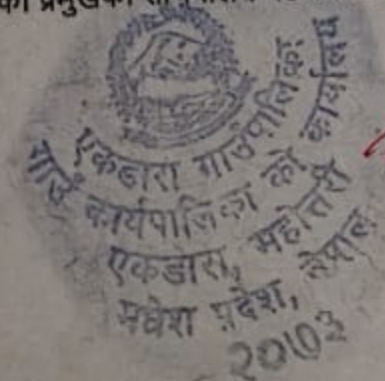 एकडारा गाउँपालिका
गाउँ कार्यपालिका को कार्यालय
एकडारा, महोत्तरी
मधेश प्रदेश, नेपाल
२०७३